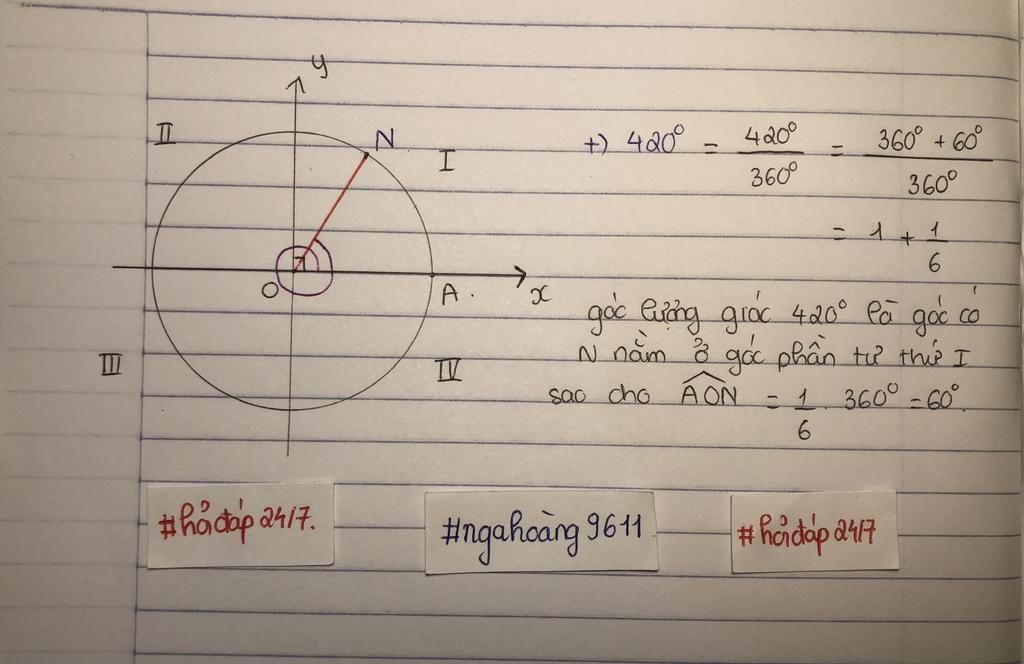 y
II
N
I
O
A.
x
III
IV
+) 420° = 420°/360° = 360° + 60°/360°
= 1 + 1/6
góc lượng giác 420° là góc có
N nằm ở góc phần tư thứ I
sao cho AÔN = 1/6 . 360° = 60°.
#hỏiđáp 24/7.
#ngahoàng9611
#hỏiđáp 24/7